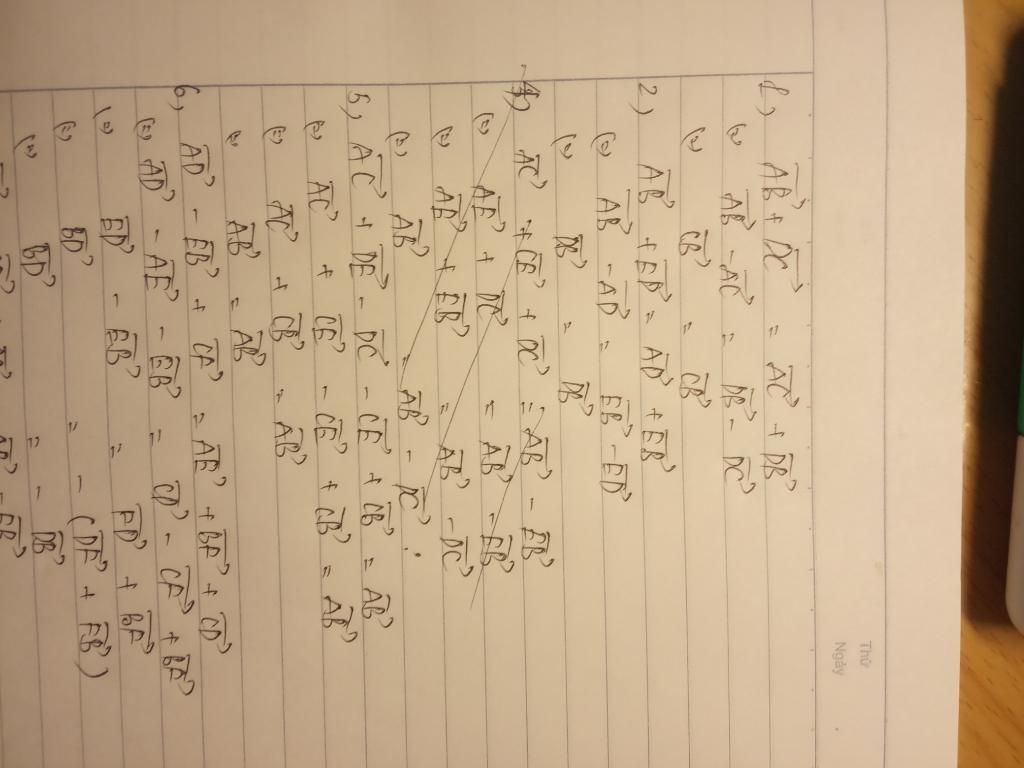 Thứ
Ngày
1) AB⃗ + DC⃗ = AC⃗ + DB⃗
(=) AB⃗ - AC⃗ = DB⃗ - DC⃗
(=) CB⃗ = CB⃗
2) AB⃗ + ED⃗ = AD⃗ + EB⃗
(=) AB⃗ - AD⃗ = EB⃗ - ED⃗
(=) DB⃗ = DB⃗
4) AC⃗ + CE⃗ + DC⃗ = AB⃗ - EB⃗
(=) AE⃗ + DC⃗ = AB⃗ - EB⃗
(=) AE⃗ + EB⃗ = AB⃗ - DC⃗
(=) AB⃗ = AB⃗ - DC⃗ :
5) AC⃗ + DE⃗ - DC⃗ - CE⃗ + CB⃗ = AB⃗
(=) AC⃗ + CE⃗ - CE⃗ + CB⃗ = AB⃗
(=) AC⃗ + CB⃗ = AB⃗
(=) AB⃗ = AB⃗
6) AD⃗ - EB⃗ + CF⃗ = AE⃗ + BF⃗ + CD⃗
(=) AD⃗ - AE⃗ - EB⃗ = CD⃗ - CF⃗ + BF⃗
(=) ED⃗ - EB⃗ = FD⃗ + BF⃗
(=) BD⃗ = - (DF⃗ + FB⃗)
(=) BD⃗ = - DB⃗